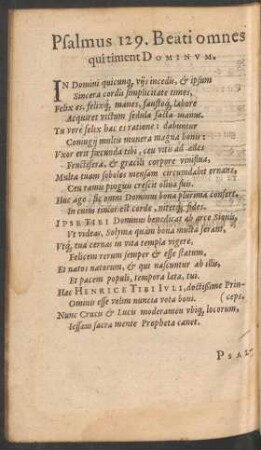 Psalmus 129. Beati omnes
qui timent DOMINVM.
IN Domini quicunq, vijs incedis, & ipsum
Sincera cordis simplicitate times,
Felix es, felixq́, manes, faustoq́, labore
Acquiret victum sedula facta manus.
Tu vere felix hac es ratione: dabuntur
Coniugij multis munera magna bonis:
Vxor erit fœcunda tibi, ceu vitis ad ædes
Fructifera, & gracili corpore vinifica,
Multa tuam soboles mensam circundabit ornans,
Ceu ramis pinguis crescit oliua suis.
Huc age, sic omni Dominus bona plurima confert,
In cuius timor est corde, nitetq́, fides.
IPSE TIBI Dominus benedicat ab arce Sionis,
Vt videas, Solyma quàm bona multa ferant,
Vtq́, tua cernas in vita templa vigere,
Felicem rerum semper & esse statum,
Et natos natorum, & qui nascuntur ab illis,
Et pacem populi, tempora læta, tui.
Hæc HENRICE TIBI IVLI, doctissime Prin-
Ominis esse velim nuncia vota boni. (ceps,
Nunc Crucis & Lucis moderamen vbiq́, locorum,
Iessæus sacra mente Propheta canet.
PSAL-